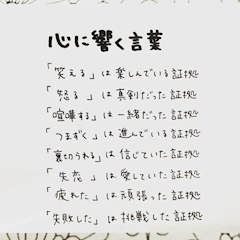 心に響く言葉
「笑える」は楽しんでいる証拠
「怒る」は真剣だった証拠
「喧嘩する」は一緒だった証拠
「つまずく」は進んでいる証拠
「裏切られる」は信じていた証拠
「失恋」は愛していた証拠
「疲れた」は頑張った証拠
「失敗した」は挑戦した証拠